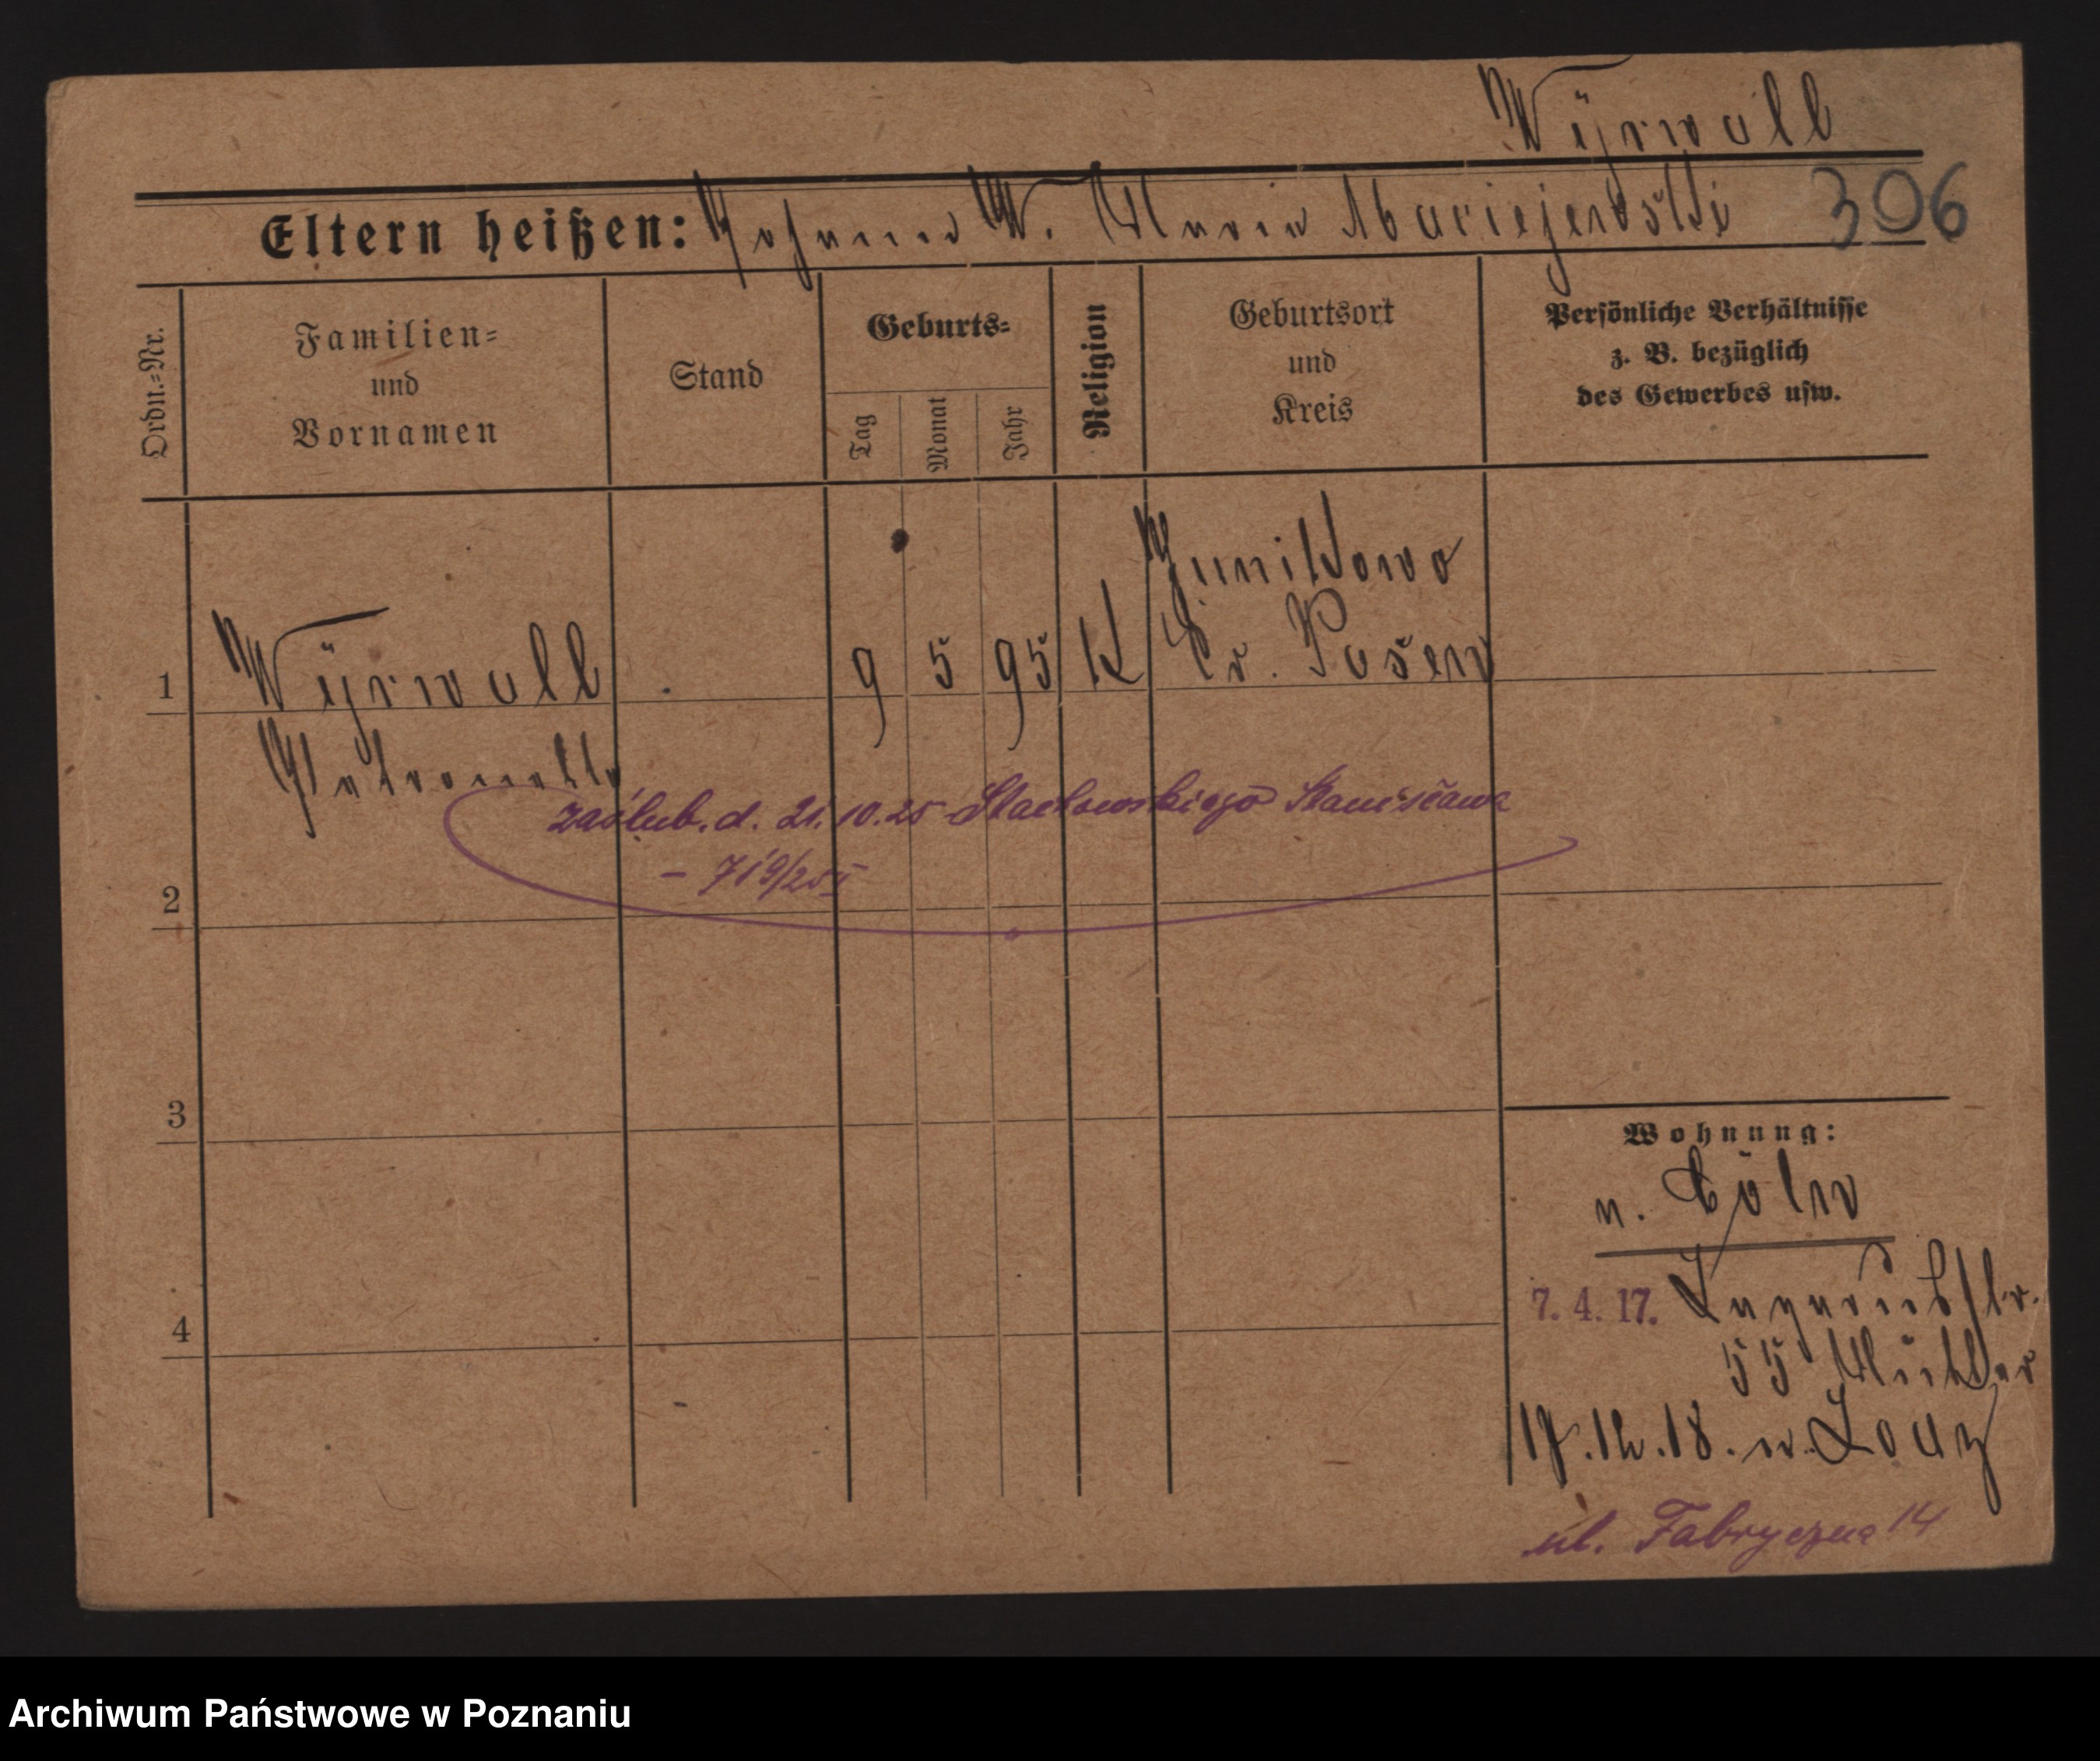 Wÿrwoll
Eltern heißen: Johann W. Maria Maciejewski 306
Ordn.=Nr.
Familien=
und
Vornamen
Stand
Geburts=
Tag
Monat
Jahr
Religion
Geburtsort
und
Kreis
Persönliche Verhältnisse
z. B. bezüglich
des Gewerbes usw.
Junikowo
1 Wÿrwoll 9 5 95 K Kr. Posen
Petronella
zaślub. d. 21.10.25 Stachowskiego Stanisława
– 719/25
2
3
4
Wohnung:
n. Cöln
7. 4. 17. Lazarusstr.
55 Mutter
17.12.18. v.
ul. Fabryczna 14
Archiwum Państwowe w Poznaniu